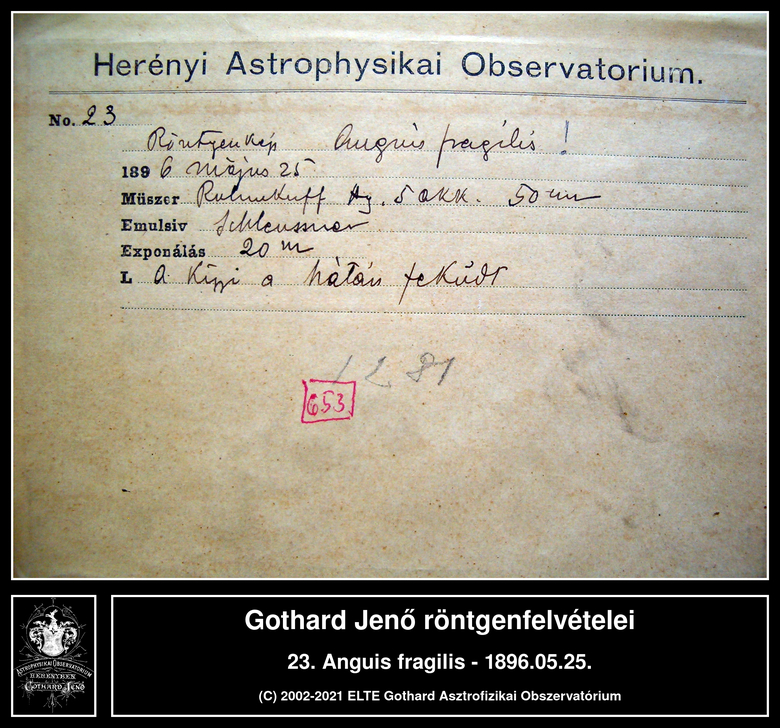 Herényi Astrophysikai Observatorium.
No. 23
Röntgenkép Anguis fragilis !
1896 május 25
Müszer Ruhmkuff Hg. 5 akk. 50 mm
Emulsiv Schleussner
Exponálás 20 m
L A kigyi a hátán feküdt
1281
653.
Gothard Jenő röntgenfelvételei
23. Anguis fragilis - 1896.05.25.
(C) 2002-2021 ELTE Gothard Asztrofizikai Obszervatórium
ASTROPHYSIKAI OBSERVATORIUM
HERÉNYBEN
GOTHARD JENŐ